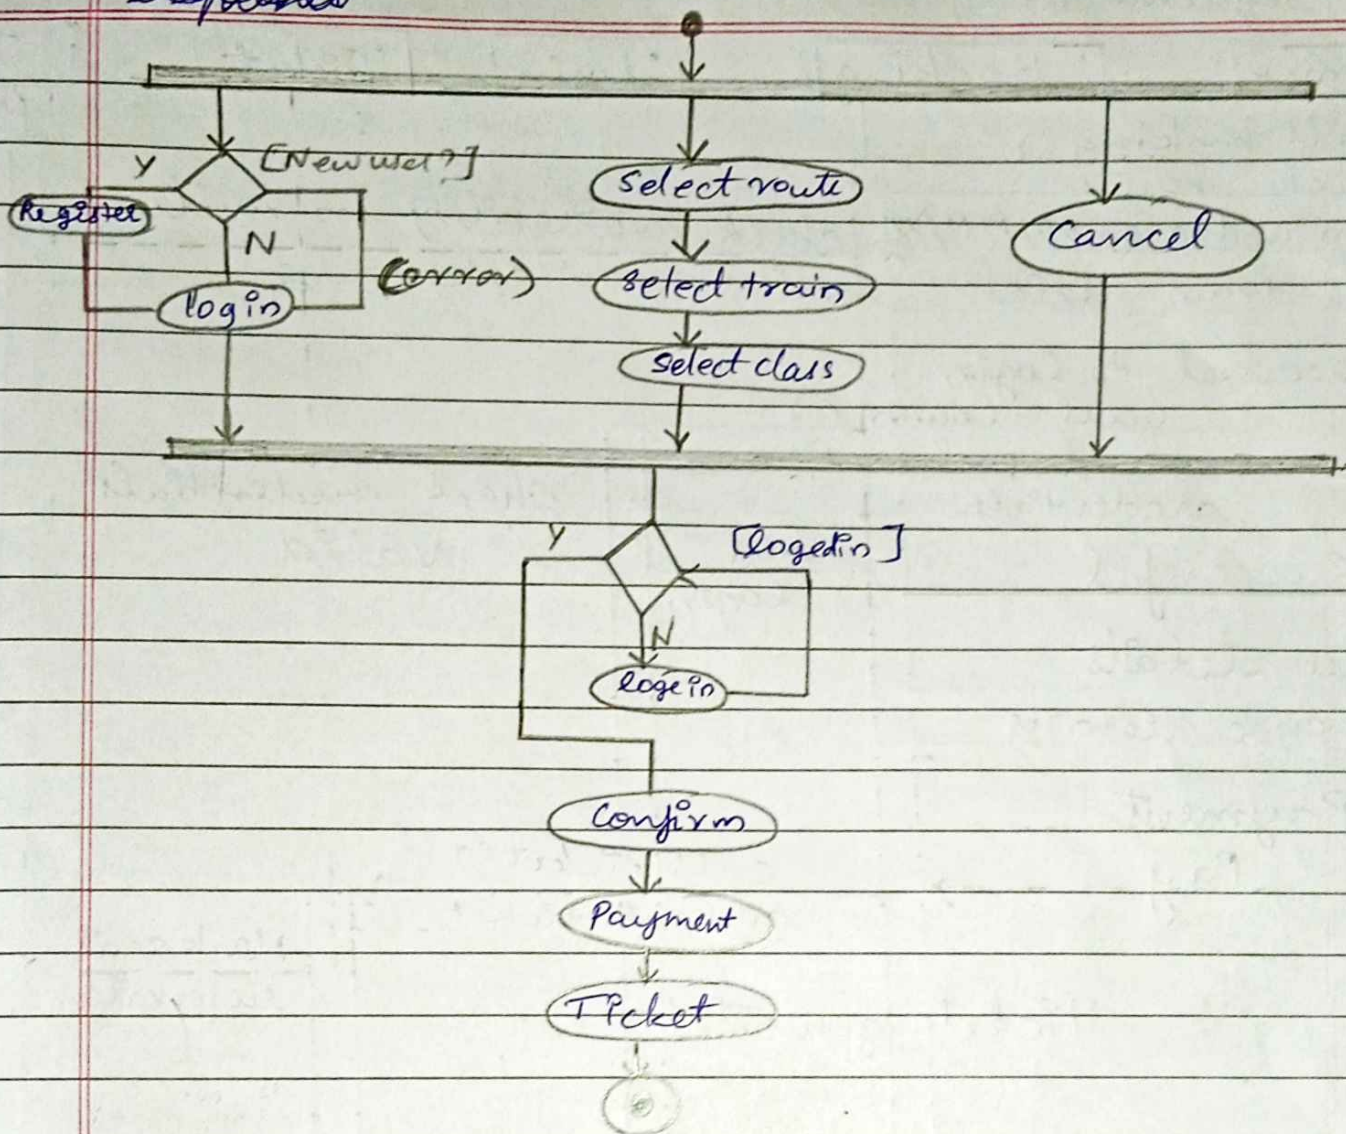 Y
[New user?]
Register
N
(error)
login
Select route
Select train
Select class
Cancel
Y
[logedin]
N
logein
Confirm
Payment
Ticket